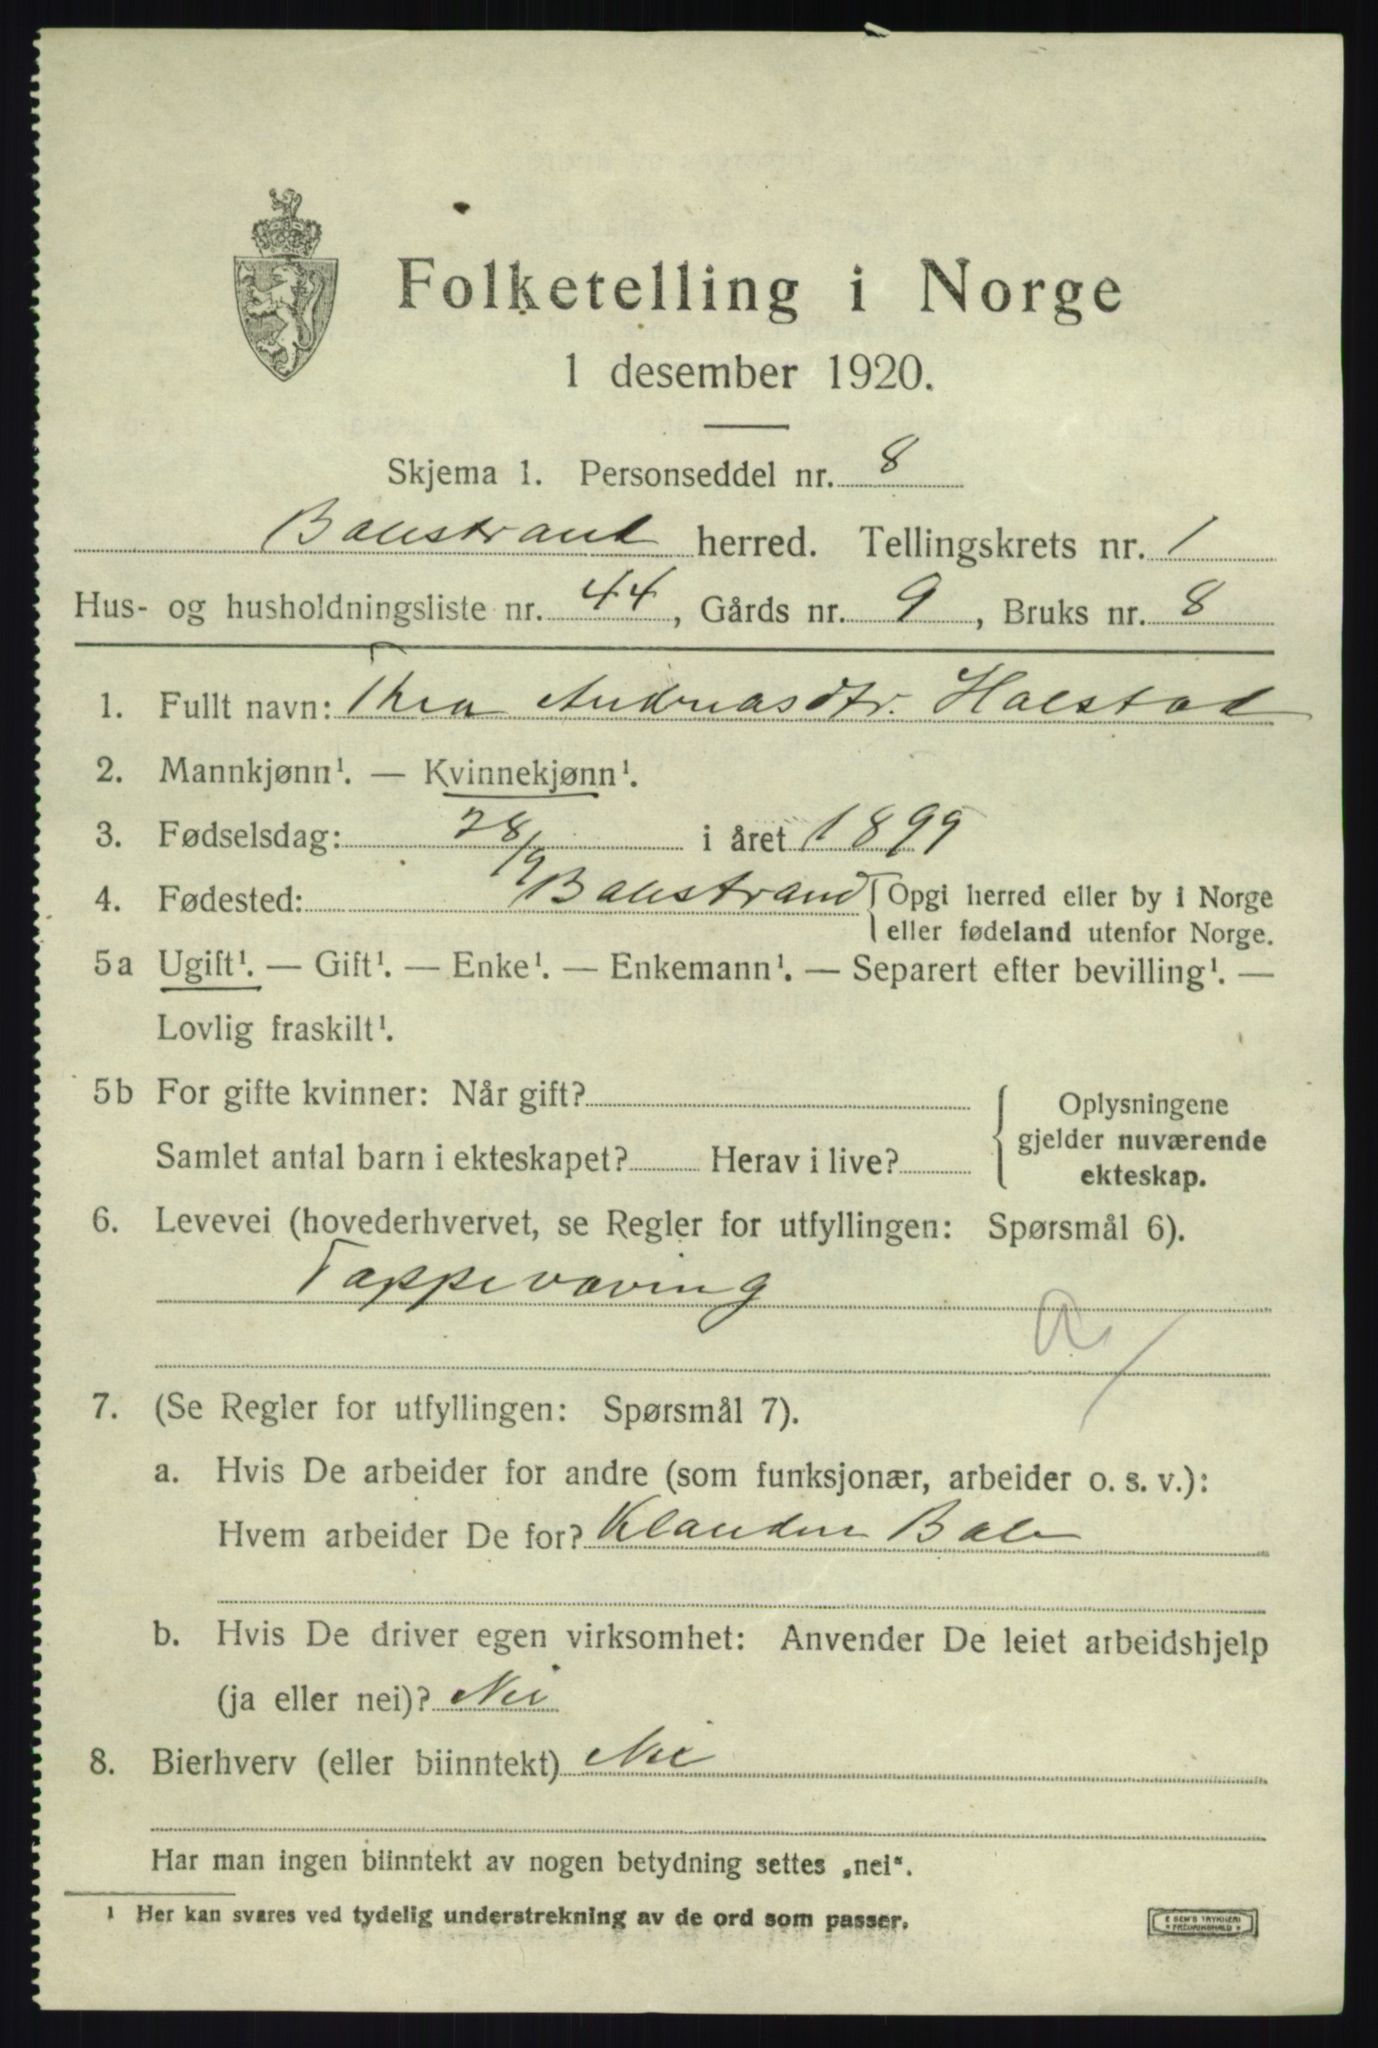 Folketelling i Norge
1 desember 1920.
Skjema 1. Personseddel nr. 8
Balestrand herred. Tellingskrets nr. 1
Hus- og husholdningsliste nr. 44, Gårds nr. 9, Bruks nr. 8
1. Fullt navn: Thea Andreasdtr. Halstad
2. Mannkjønn¹. — Kvinnekjønn¹.
3. Fødselsdag: 28/9 i året 1899
4. Fødested: Balestrand { Opgi herred eller by i Norge
eller fødeland utenfor Norge.
5a Ugift¹. — Gift¹. — Enke¹. — Enkemann¹. — Separert efter bevilling¹. —
Lovlig fraskilt¹.
5b For gifte kvinner: Når gift?
Samlet antal barn i ekteskapet? Herav i live?
{ Oplysningene
gjelder nuværende
ekteskap.
6. Levevei (hovederhvervet, se Regler for utfyllingen: Spørsmål 6).
Tappevæving
7. (Se Regler for utfyllingen: Spørsmål 7).
a. Hvis De arbeider for andre (som funksjonær, arbeider o. s. v.):
Hvem arbeider De for? Klaudine Bale
b. Hvis De driver egen virksomhet: Anvender De leiet arbeidshjelp
(ja eller nei)? Nei
8. Bierhverv (eller biinntekt) Nei
Har man ingen biinntekt av nogen betydning settes „nei“.
1 Her kan svares ved tydelig understrekning av de ord som passer.